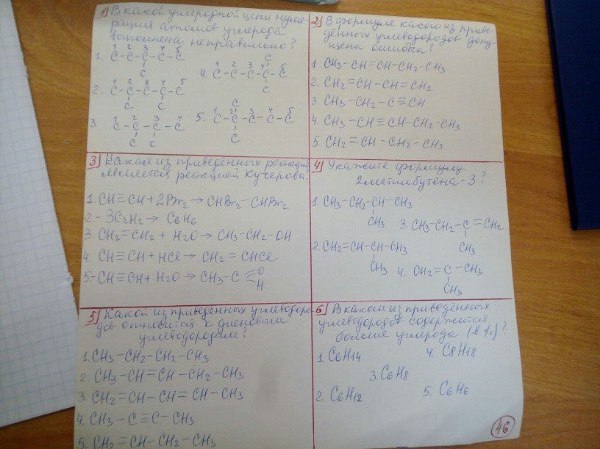 1) В какой углеродной цепи нуме-
рация атомов углерода
выполнена неправильно?
1 2 3 4 5
1. C-C-C-C-C
C
C
1 2 3 4 5
4. C-C-C-C-C
C
1 2 3 4 5
2. C-C-C-C-C
C C
1 2 3 4 5
5. C-C-C-C-C
C
C
1 2 3 4
3. C-C-C-C
C C
2) В формуле какого из приве-
дённых углеводородов допу-
щена ошибка?
1. CH3-CH=CH-CH2-CH3
2. CH2=CH-CH=CH2
3. CH3-CH2-C≡CH
4. CH3-CH≡CH-CH2-CH3
5. CH2=CH-CH2-CH3
3) Какая из приведённых реакций
является реакцией Кучерова?
1. CH≡CH+2Br2→CHBr2-CHBr2
2. 3C2H2→C6H6
3. CH2=CH2+H2O→CH3-CH2-OH
4. CH≡CH+HCl→CH2=CHCl
5. CH≡CH+H2O→CH3-C
O
H
4) Укажите формулу
2метилбутена-3?
1. CH3-CH2-CH-CH3
CH3
3. CH3-CH2-C=CH2
CH3
2. CH2=CH-CH-CH3
CH3
4. CH2=C-CH3
CH3
5) Какой из приведённых углеводоро-
дов относится к диеновым
углеводородам?
1. CH3-CH2-CH2-CH3
2. CH3-CH=CH-CH2-CH3
3. CH2=CH-CH=CH-CH3
4. CH3-C≡C-CH3
5. CH2=CH-CH2-CH3
6) В каком из приведённых
углеводородов содержится
больше углерода (в %)?
1. C6H14
4. C8H18
3. C6H8
2. C6H12
5. C6H6
46